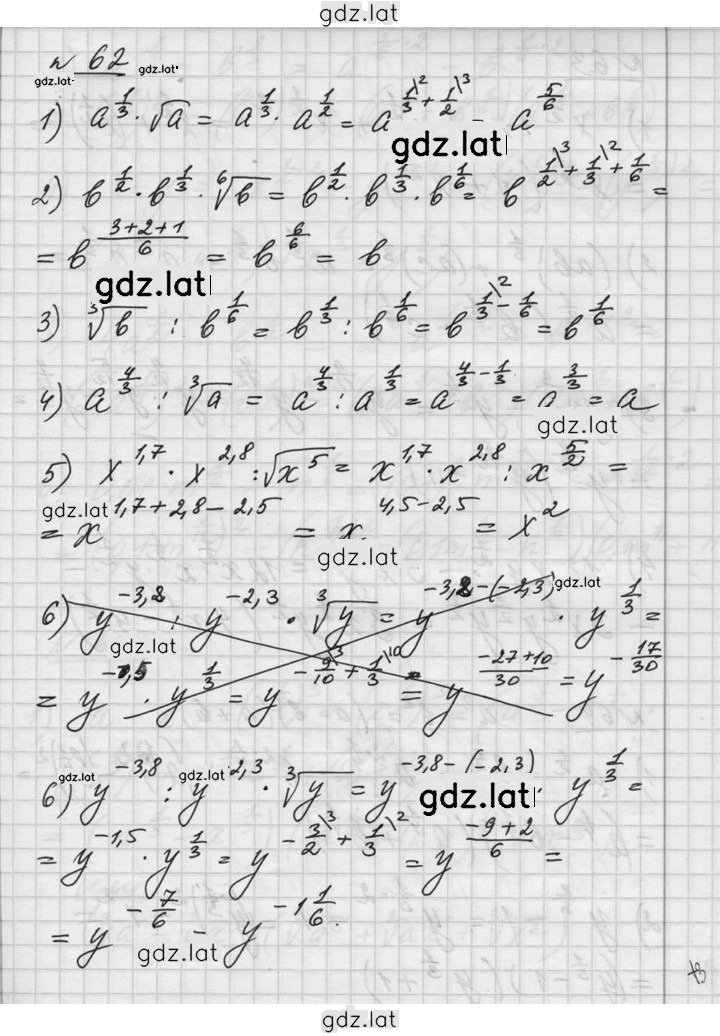 gdz.lat
№ 62
gdz.lat gdz.lat
1) a^(1/3) · √a = a^(1/3) · a^(1/2) = a^(1/3\2 + 1/2\3) = a^(5/6)
gdz.lat
2) b^(1/2) · b^(1/3) · ⁶√b = b^(1/2) · b^(1/3) · b^(1/6) = b^(1/2\3 + 1/3\2 + 1/6) =
= b^((3+2+1)/6) = b^(6/6) = b
gdz.lat
3) ³√b : b^(1/6) = b^(1/3) : b^(1/6) = b^(1/3\2 − 1/6) = b^(1/6)
4) a^(4/3) : ³√a = a^(4/3) : a^(1/3) = a^(4/3 − 1/3) = a^(3/3) = a
gdz.lat
5) x^(1,7) · x^(2,8) : √x^5 = x^(1,7) · x^(2,8) : x^(5/2) =
gdz.lat
= x^(1,7+2,8−2,5) = x^(4,5−2,5) = x^2
gdz.lat
gdz.lat
6) y : y^(−2,3) · ³√y = y · y^(1/3) =
gdz.lat
= y · y^(1/3) = y^(−9/10\3 + 1/3\10) = y^((−27+10)/30) = y^(−17/30)
gdz.lat gdz.lat
6) y^(−3,8) : y^(2,3) · ³√y = y^(−3,8−(−2,3)) · y^(1/3) =
gdz.lat
= y^(−1,5) · y^(1/3) = y^(−3/2\3 + 1/3\2) = y^((−9+2)/6) =
= y^(−7/6) = y^(−1 1/6)
gdz.lat
gdz.lat